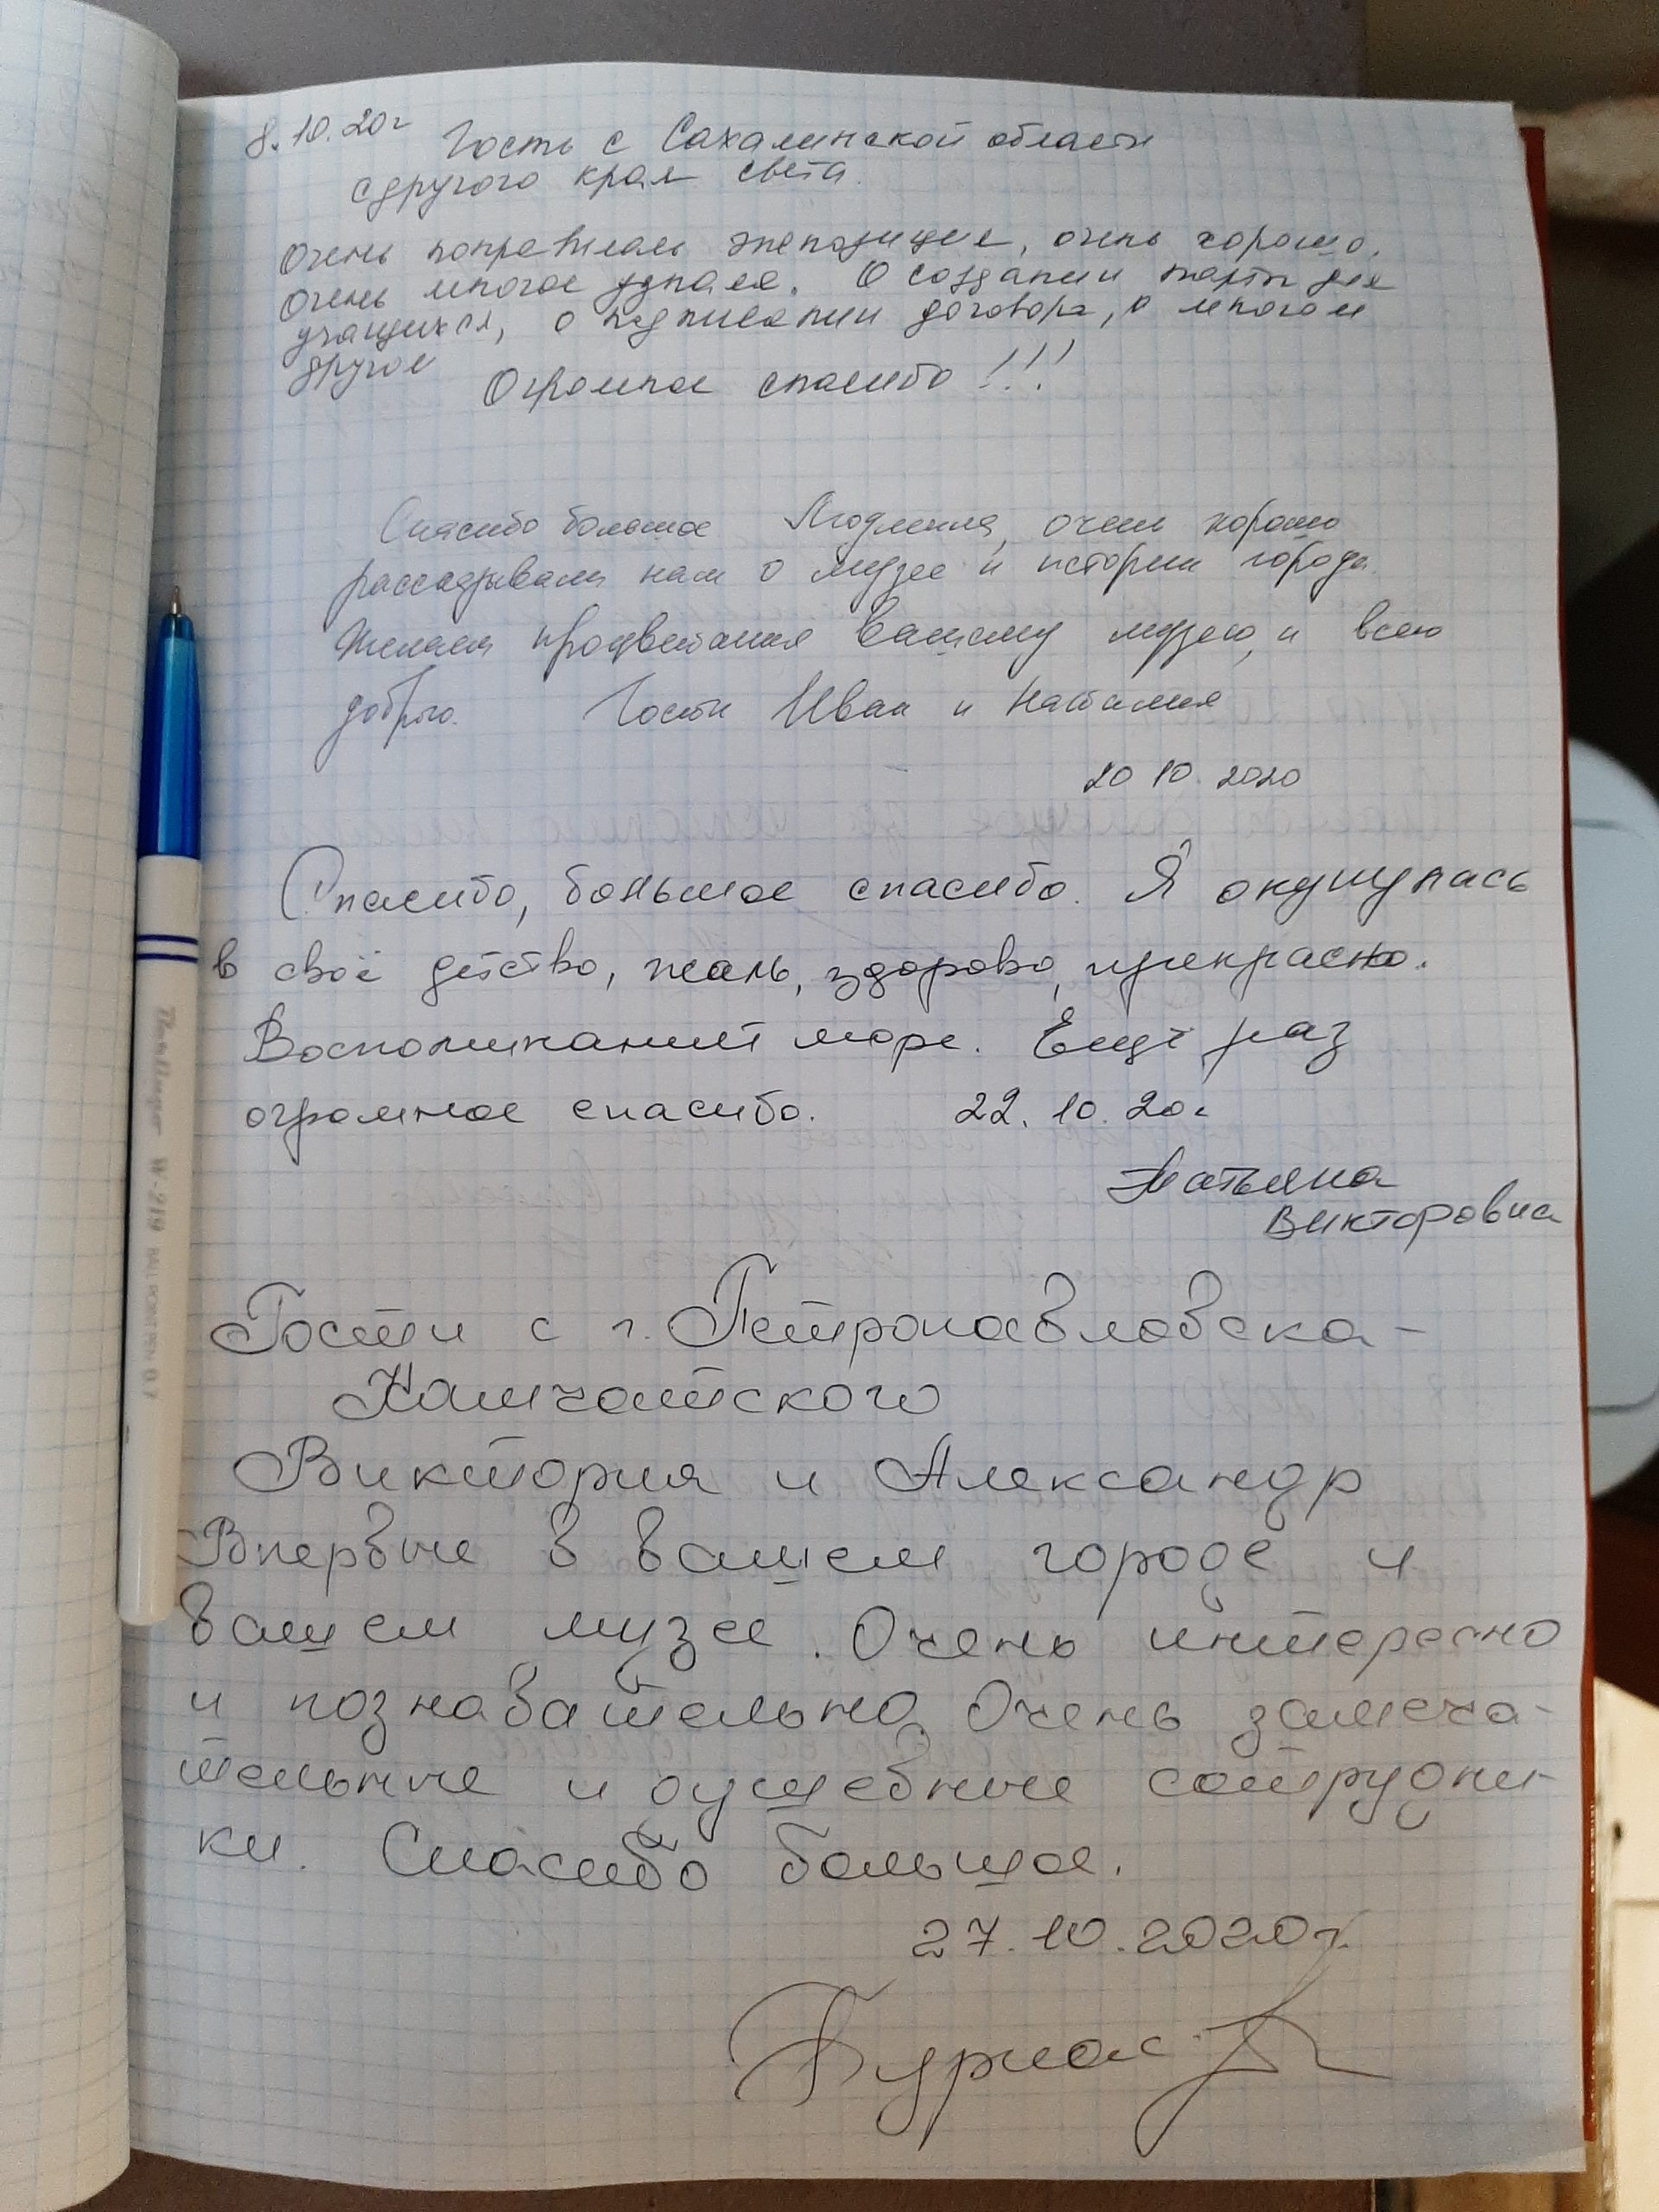 8.10.20г Гость с Сахалинской области
с другого края света.
Очень понравилась экспозиция, очень хорошо.
Очень многое узнала. О создании парты для
учащихся, о подписании договора, о многом
другом
Огромное спасибо!!!
Спасибо большое Людмила, очень хорошо
рассказывали нам о музее и истории города.
Желаем процветания вашему музею, и всего
доброго. Гости Иван и Наталия
20 10. 2020
Спасибо, большое спасибо. Я окунулась
в своё детство, жаль, здорово, прекрасно.
Воспоминаний море. Ещё раз
огромное спасибо. 22. 10. 20г
Татьяна
Викторовна
Гости с г. Петропавловска-
Камчатского
Виктория и Александр
Впервые в вашем городе и
вашем музее. Очень интересно
и познавательно. Очень замеча-
тельные и душевные сотрудни-
ки. Спасибо большое.
27.10.2020г.